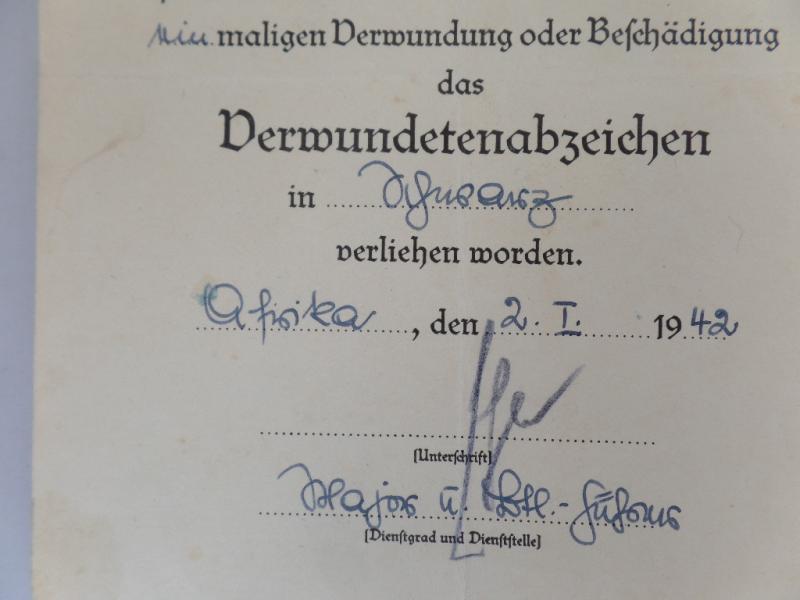 ein maligen Verwundung oder Beſchädigung
das
Verwundetenabzeichen
in Schwarz
verliehen worden.
Afrika, den 2. I. 1942
(Unterſchrift)
Major u. Btl.-Führer
(Dienſtgrad und Dienſtſtelle)